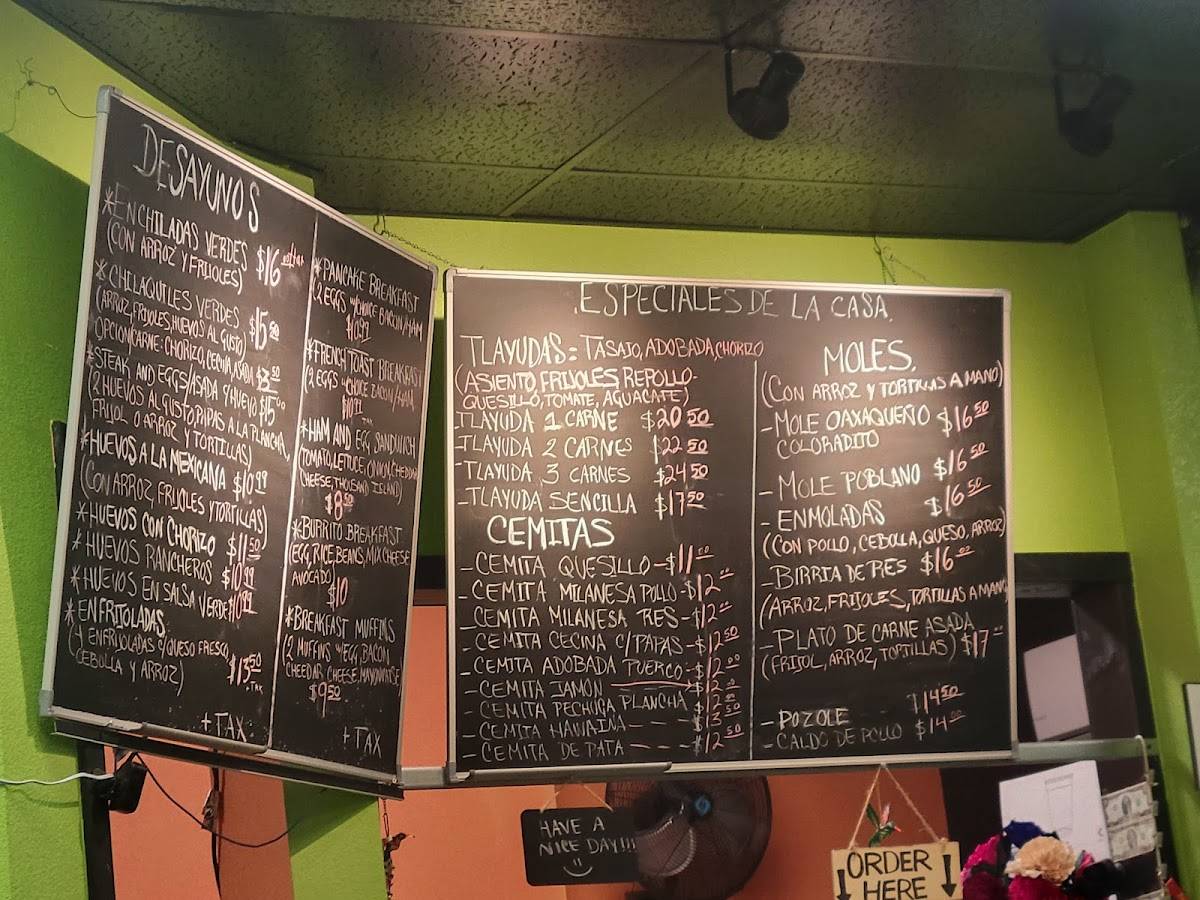 DESAYUNOS
*ENCHILADAS VERDES $16
(CON ARROZ Y FRIJOLES)
*CHILAQUILES VERDES $15.50
(ARROZ, FRIJOLES, HUEVOS AL GUSTO)
OPCION CARNE: CHORIZO, CECINA, ASADA
*STEAK AND EGGS/ASADA Y HUEVO $15
(2 HUEVOS AL GUSTO, PAPAS A LA PLANCHA,
FRIJOL O ARROZ Y TORTILLAS)
*HUEVOS A LA MEXICANA $10.99
(CON ARROZ, FRIJOLES Y TORTILLAS)
*HUEVOS CON CHORIZO $11.50
*HUEVOS RANCHEROS $10.99
*HUEVOS EN SALSA VERDE $10.99
*ENFRIJOLADAS
(4 ENFRIJOLADAS C/QUESO FRESCO,
CEBOLLA Y ARROZ) $13.50
+TAX
+TAX
*PANCAKE BREAKFAST
(2 EGGS W/CHOICE BACON/HAM
$10.99
*FRENCH TOAST BREAKFAST
(2 EGGS W/CHOICE BACON/HAM,
$10.99
*HAM AND EGG SANDWICH
(TOMATO, LETTUCE, ONION, CHEDDAR
CHEESE, THOUSAND ISLAND)
$8.50
*BURRITO BREAKFAST
(EGG, RICE, BEANS, MIX CHEESE
AVOCADO)
$10
*BREAKFAST MUFFINS
(2 MUFFINS W/EGG, BACON,
CHEEDAR CHEESE, MAYONNAISE)
$9.50
+TAX
ESPECIALES DE LA CASA.
TLAYUDAS: TASAJO, ADOBADA, CHORIZO
(ASIENTO, FRIJOLES, REPOLLO-
QUESILLO, TOMATE, AGUACATE)
TLAYUDA 1 CARNE $20.50
-TLAYUDA 2 CARNES $22.50
-TLAYUDA 3 CARNES $24.50
-TLAYUDA SENCILLA $17.50
CEMITAS
-CEMITA QUESILLO-$11.50
-CEMITA MILANESA POLLO-$12.00
-CEMITA MILANESA RES-$12.00
-CEMITA CECINA C/PAPAS-$12.50
-CEMITA ADOBADA PUERCO-$12.00
-CEMITA JAMON $12
-CEMITA PECHUGA PLANCHA $12
-CEMITA HAWAINA---$13.50
-CEMITA DE PATA----$12.50
MOLES.
(CON ARROZ Y TORTILLAS A MANO)
-MOLE OAXAQUEÑO $16.50
COLORADITO
-MOLE POBLANO $16.50
-ENMOLADAS $16.50
(CON POLLO, CEBOLLA, QUESO, ARROZ)
-BIRRIA DE RES $16.00
(ARROZ, FRIJOLES, TORTILLAS A MANO
-PLATO DE CARNE ASADA
(FRIJOL, ARROZ, TORTILLAS) $17.00
-POZOLE $14.50
-CALDO DE POLLO $14.00
HAVE A
NICE DAY!!!
ORDER
HERE